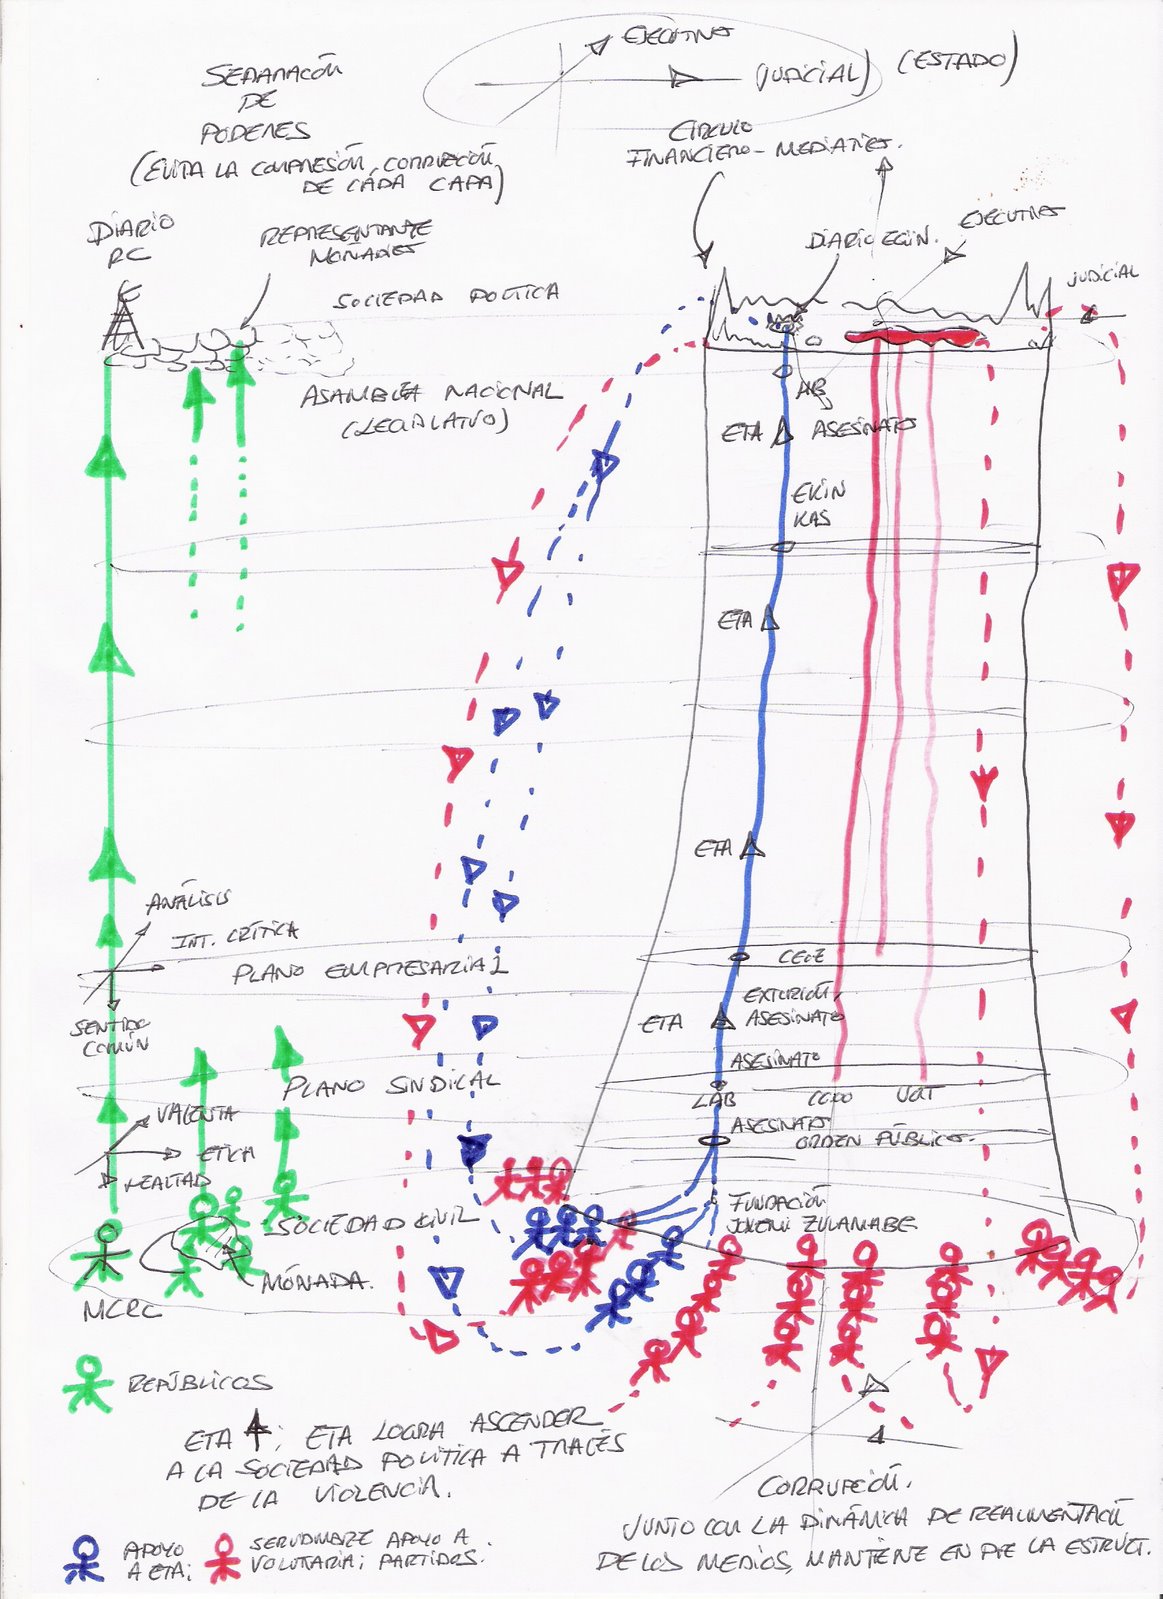 EJECUTIVO
(JUDICIAL) (ESTADO)
SEPARACIÓN
DE
PODERES
(EVITA LA COMPRESIÓN, CORRUPCIÓN
DE CADA CAPA)
CÍRCULO
FINANCIERO-MEDIÁTICO.
DIARIO
RC
REPRESENTANTE
MONADAS
SOCIEDAD POLÍTICA
DIARIO EGIN.
EJECUTIVO
JUDICIAL
ASAMBLEA NACIONAL
(LEGISLATIVO)
HB
ETA ASESINATO
EKIN
KAS
ETA
ETA
ANÁLISIS
INT. CRÍTICA
PLANO EMPRESARIAL
SENTIDO
COMÚN
CEOE
EXTORSIÓN,
ETA ASESINATO
ASESINATO
PLANO SINDICAL
LAB CCOO UGT
VALENTÍA
ETICA
LEALTAD
ASESINATO
ORDEN PÚBLICO.
SOCIEDAD CIVIL
FUNDACIÓN
JOXEMI ZUMALABE
MÓNADA.
MCRC
REPÚBLICOS
ETA ↑; ETA LOGRA ASCENDER
A LA SOCIEDAD POLÍTICA A TRAVÉS
DE LA VIOLENCIA.
CORRUPCIÓN.
JUNTO CON LA DINÁMICA DE REALIMENTACIÓN
DE LOS MEDIOS, MANTIENE EN PIE LA ESTRUCT.
APOYO
A ETA;
SERVIDUMBRE APOYO A
VOLUTARIA; PARTIDOS.